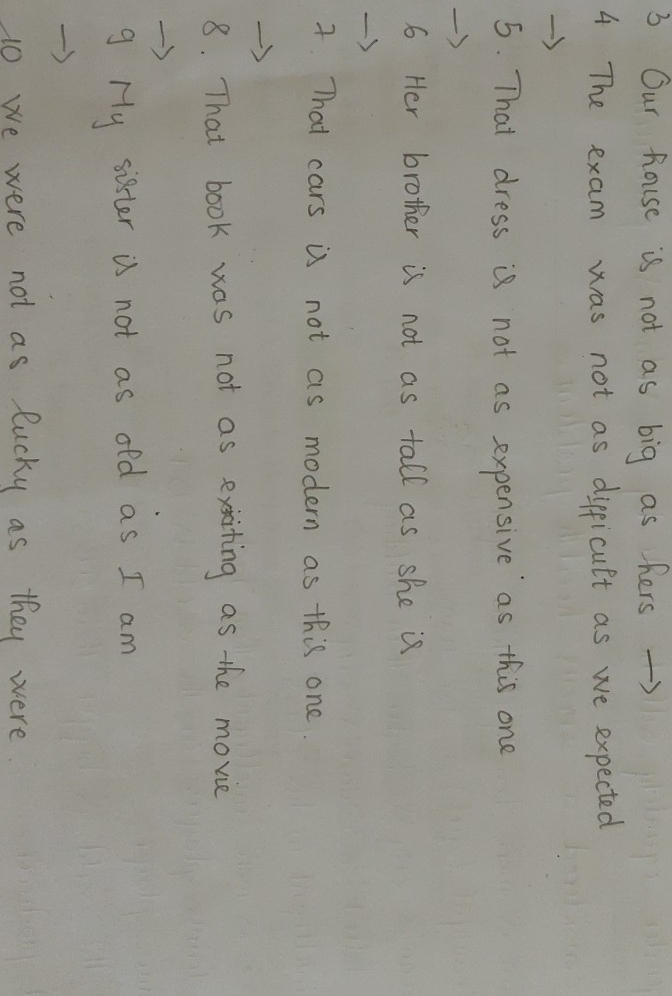 3 Our house is not as big as hers →
4 The exam was not as difficult as we expected
→
5. That dress is not as expensive as this one
→
6 Her brother is not as tall as she is
→
7. That cars is not as modern as this one.
→
8. That book was not as exiting as the movie
→
9 My sister is not as old as I am
→
10 We were not as lucky as they were.